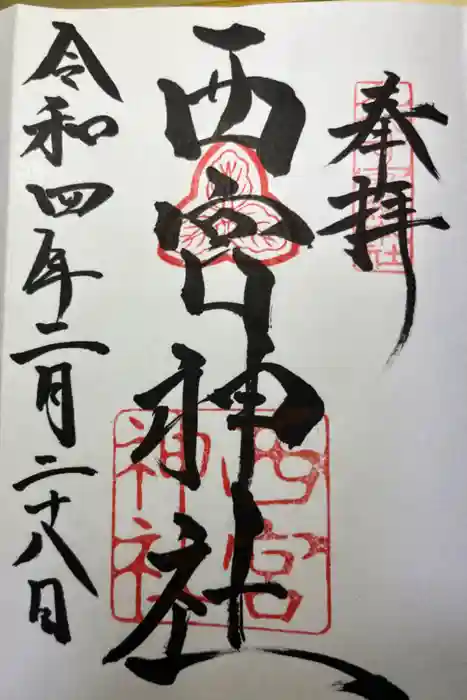 奉拝
西宮神社
令和四年二月二十八日
西宮
神社